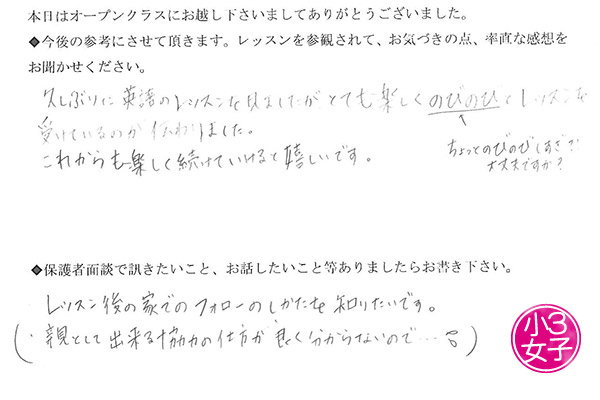 本日はオープンクラスにお越し下さいましてありがとうございました。
◆今後の参考にさせて頂きます。レッスンを参観されて、お気づきの点、率直な感想を
お聞かせください。
久しぶりに英語のレッスンを見ましたがとても楽しくのびのびとレッスンを
受けているのが伝わりました。
ちょっとのびのびしすぎ?
大丈夫ですか?
これからも楽しく続けていけると嬉しいです。
◆保護者面談で訊きたいこと、お話したいこと等ありましたらお書き下さい。
・レッスン後の家でのフォローのしかたを知りたいです。
(・親として出来る協力の仕方が良く分からないので…)
小3
女子